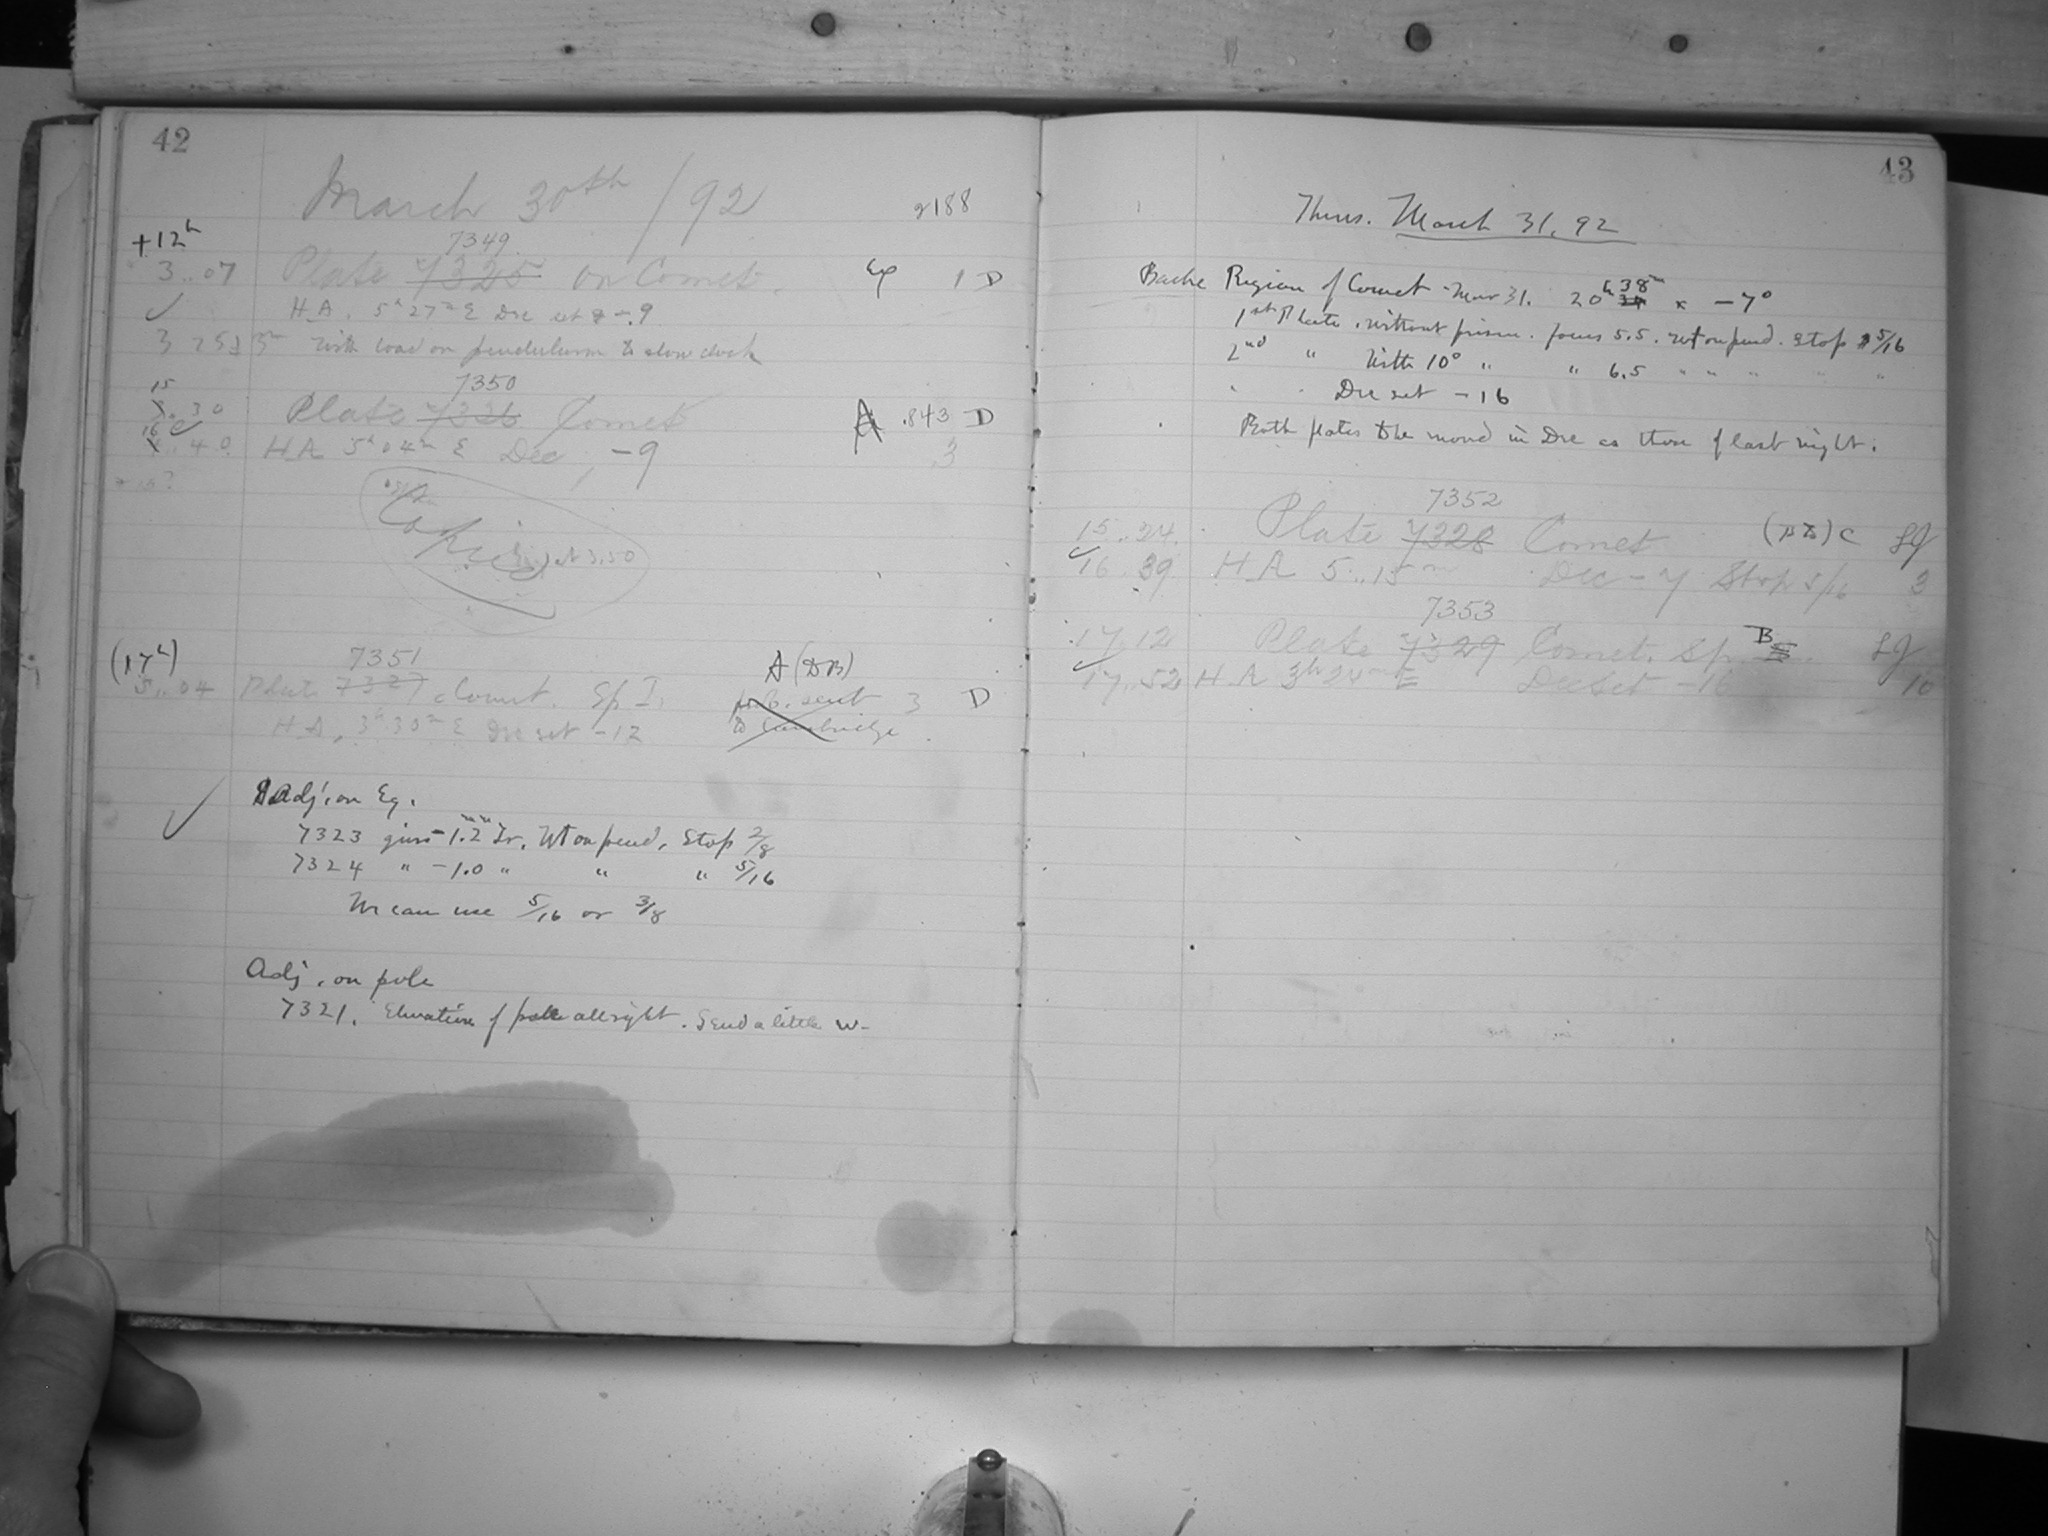 42
March 30th /92
2188
+12h
7349
3..07 Plate 7325 on Comet. Ex 1 D
H.A. 5h27m E Dec set -9
3 25 3m with load on pendulum to slow clock
15
7350
3.30 Plate 7326 Comet A .843 D
16
4.40 HA 5h04m E Dec, -9 3
Copied at 3.50
(17h)
7351
A (DB)
5..04 Plate 7327. Comet. Sp I. sent 3 D
H.A. 3h30m E Dec set -12 to Cambridge
Adj. on Eq.
7323 gives -1.2mm Tr. Wt on pend. Stop 2/8
7324 " -1.0 " " " 5/16
We can use 5/16 or 3/8
Adj. on pole
7321. Elevation of pole all right. Send a little W-
43
Thurs. March 31, 92
Bache Region of Comet Mar 31. 20h 38m -7°
1st Plate. without prism. focus 5.5. wt on pend. Stop 5/16
2nd " With 10° " " 6.5 " " " " "
" " Dec set -16
Both plates to be moved in Dec as those of last night.
7352
15..24. Plate 7328 Comet (AB) C
16.39 HA 5..15m Dec -7 Stop 5/16 3
7353
17.12 Plate 7329 Comet. Sp. B
17..52 HA 3h24m E Dec set -16 10